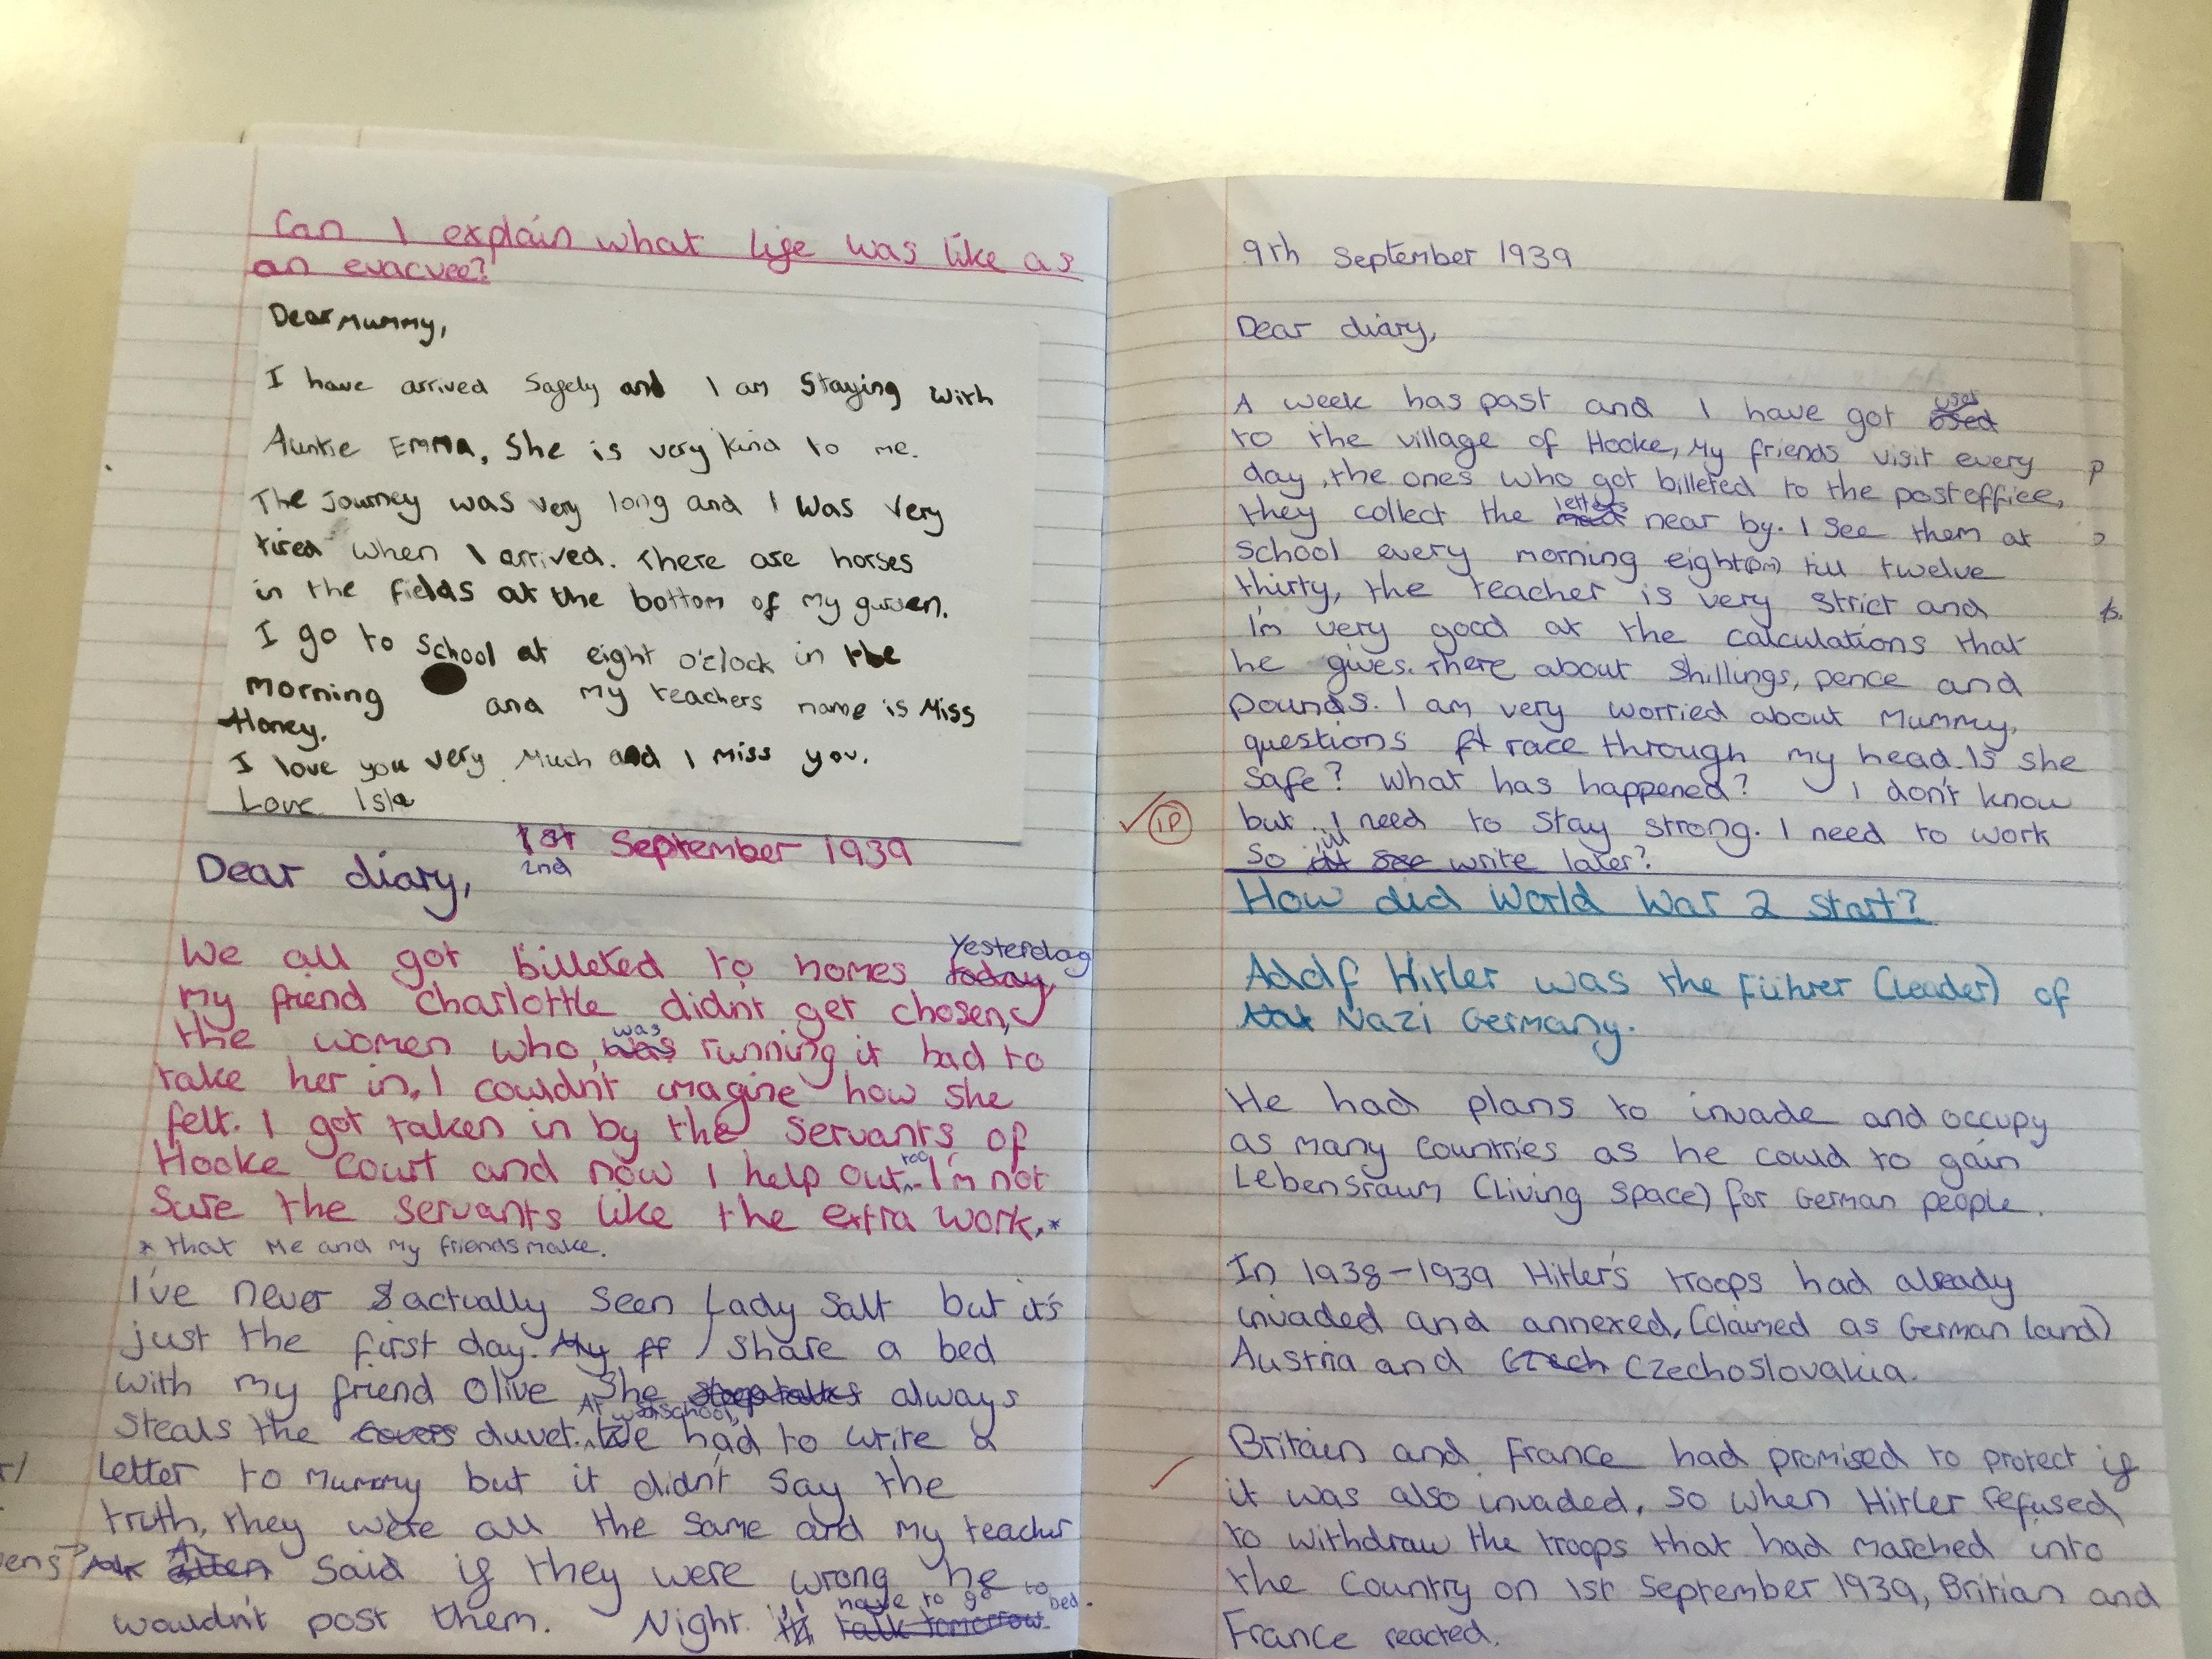 Can I explain what life was like as
an evacuee?
Dear Mummy,
I have arrived Safely and I am Staying with
Auntie Emma, She is very kind to me.
The Journey was very long and I was very
tired when I arrived. There are horses
in the fields at the bottom of my garden.
I go to School at eight o'clock in the
morning and my teachers name is Miss
Honey.
I love you very Much and I miss you.
Love Isla
1st September 1939
2nd
Dear diary,
We all got billeted to homes today, yesterday
my friend Charlottle didn't get chosen,
the women who was was running it had to
take her in, I couldn't imagine how she
felt. I got taken in by the servants of
Hooke Court and now I help out too I'm not
Sure the servants like the extra work.*
* that me and my friends make.
I've never actually seen Lady Salt but it's
just the first day. My ff I share a bed
with my friend Olive She sleep talks always
steals the covers duvet. At school, We had to write a
letter to Mummy but it didn't say the
truth, they were all the same and my teacher
said if they were wrong he
wouldn't post them. Night. I'll talk tomorrow. have to go to bed.
9th September 1939
Dear diary,
A week has past and I have got used used
to the village of Hooke, My friends visit every
day, the ones who got billeted to the postoffice,
they collect the letters near by. I see them at
School every morning eight(pm) till twelve
thirty, the teacher is very strict and
I'm very good at the calculations that
he gives. There about Shillings, pence and
pounds. I am very worried about Mummy,
questions race through my head. Is she
safe? What has happened? I don't know
but I need to stay strong. I need to work
So I'll see write later?
1P
How did World War 2 start?
Adolf Hitler was the Führer (leader) of
Nazi Germany.
He had plans to invade and occupy
as many Countries as he could to gain
Lebensraum (Living space) for German people.
In 1938-1939 Hitler's troops had already
invaded and annexed, (claimed as German land)
Austria and Czech Czechoslovakia.
Britain and France had promised to protect if
it was also invaded, so when Hitler refused
to withdraw the troops that had marched into
the Country on 1st September 1939, Britian and
France reacted.